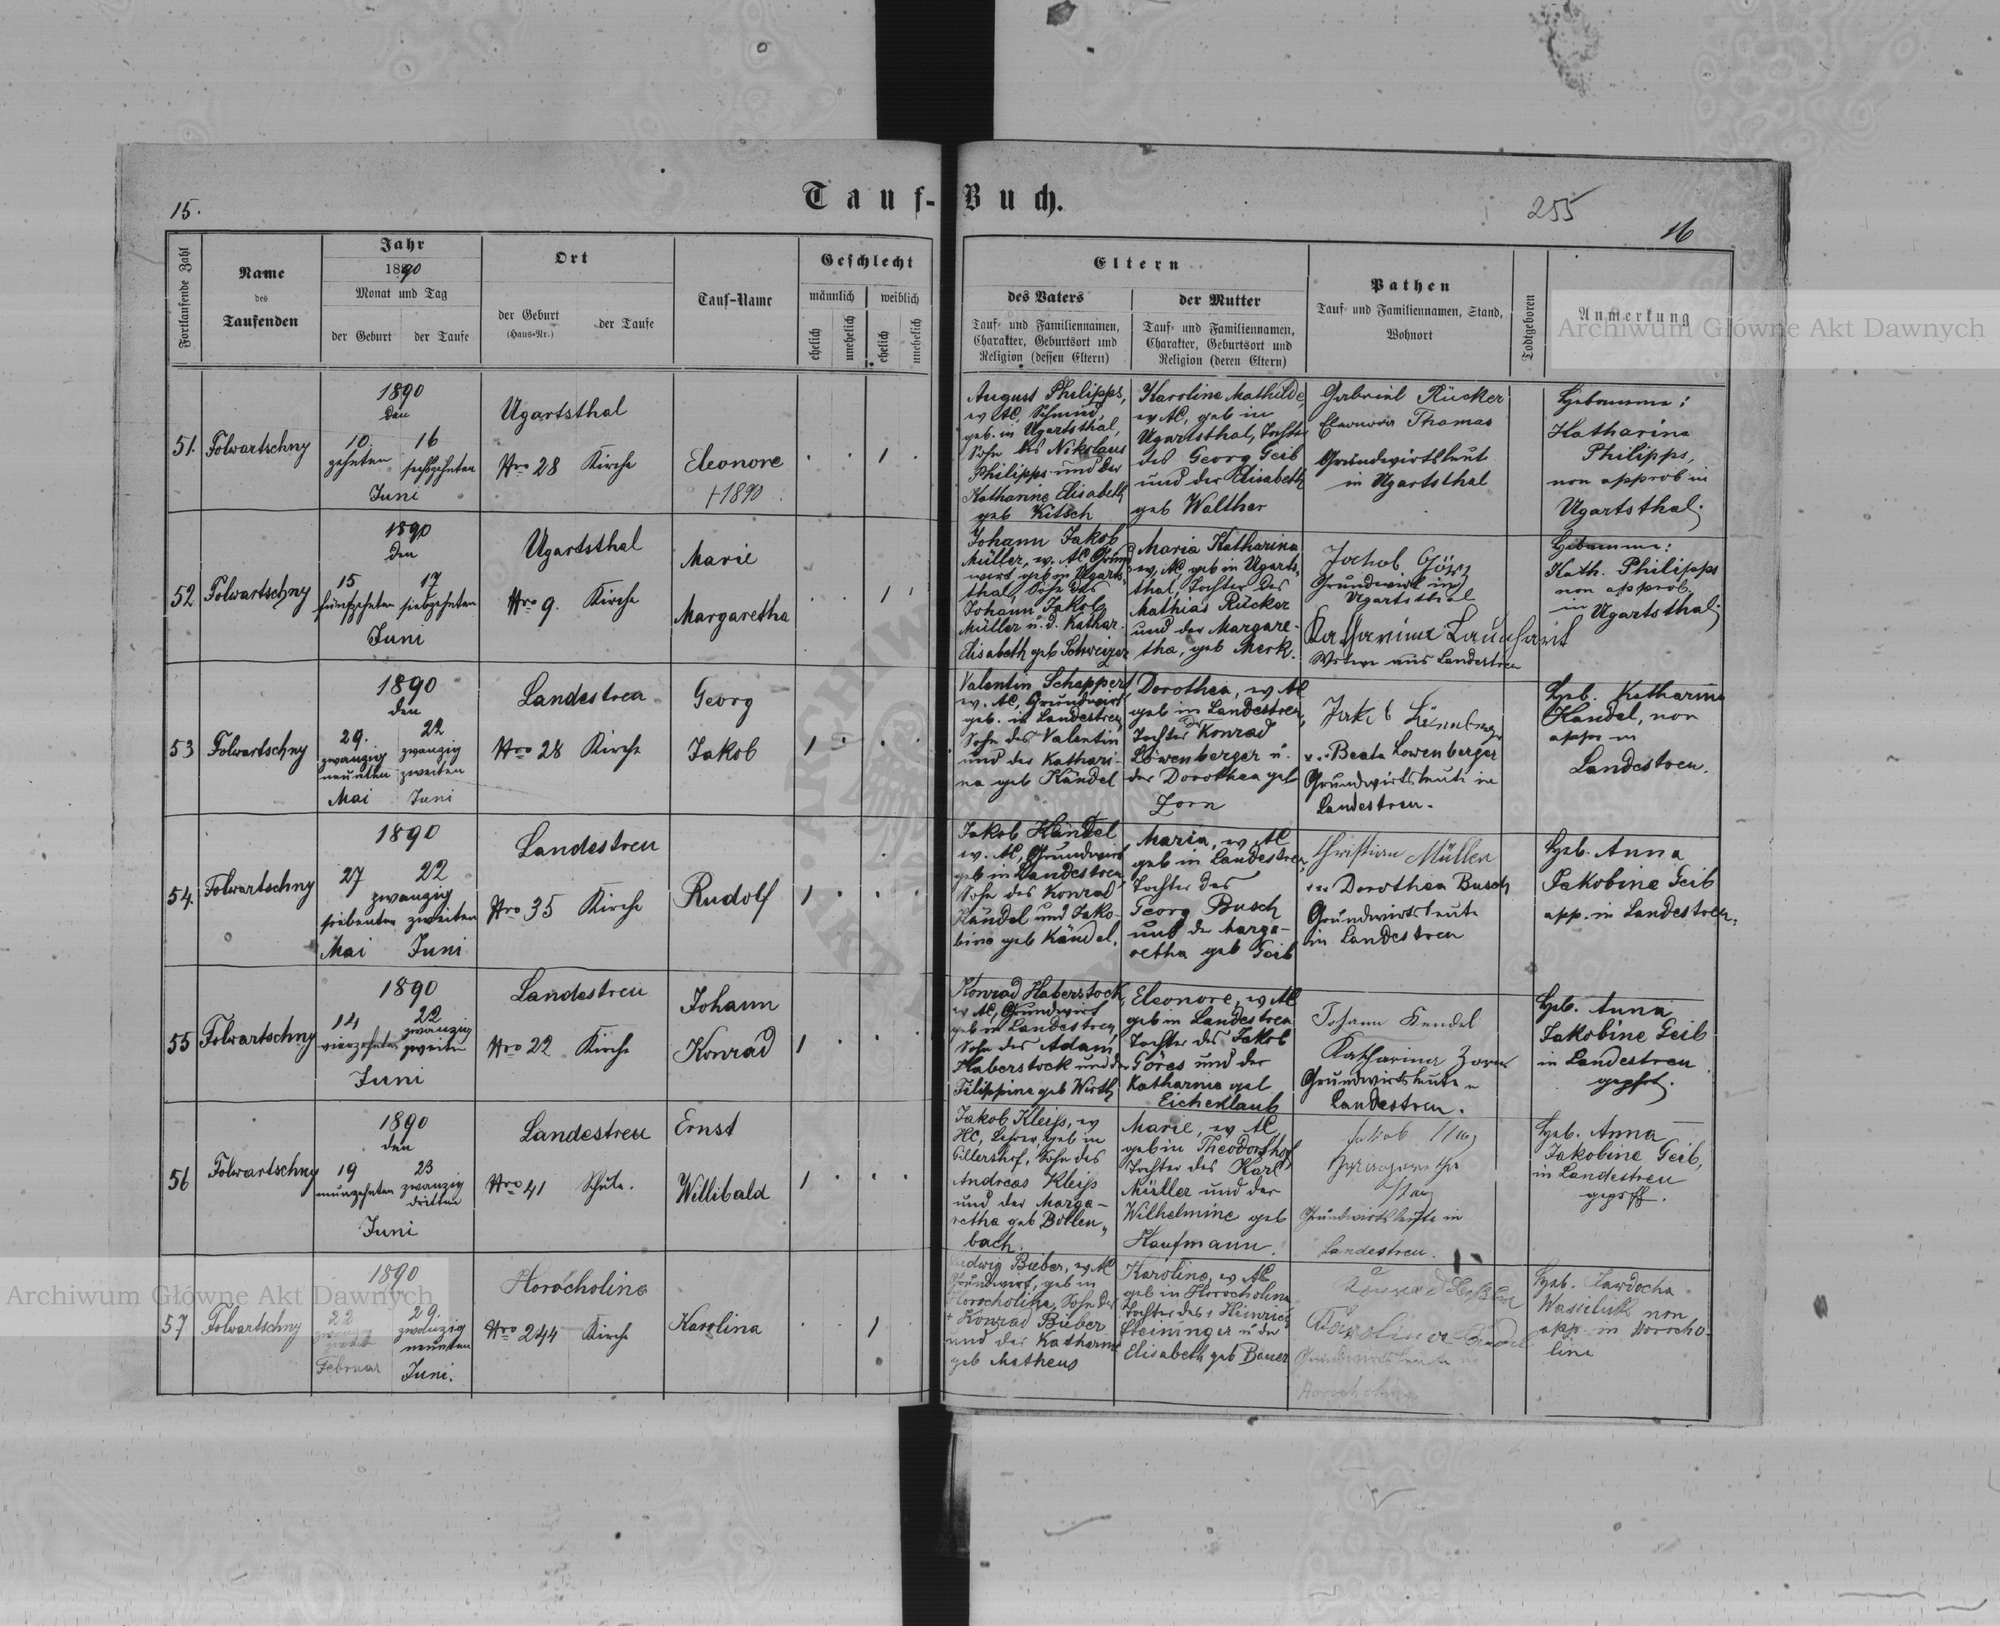 Tauf-Buch.
15.
255
16
Fortlaufende Zahl
Name
des
Taufenden
Jahr
1890
Monat und Tag
der Geburt
der Taufe
Ort
der Geburt
(Haus-Nr.)
der Taufe
Tauf-Name
Geschlecht
männlich
weiblich
ehelich
unehelich
ehelich
unehelich
Eltern
des Vaters
Tauf- und Familiennamen,
Charakter, Geburtsort und
Religion (dessen Eltern)
der Mutter
Tauf- und Familiennamen,
Charakter, Geburtsort und
Religion (deren Eltern)
Pathen
Tauf- und Familiennamen, Stand,
Wohnort
Todtgeboren
Anmerkung
Archiwum Główne Akt Dawnych
51.
Folwartschny
1890
den
10. 16
zehnten sechszehnten
Juni
Ugartsthal
Nro 28 Kirche
Eleonore
+ 1890
1
August Philipps,
ev AC, Schmied,
geb. in Ugartsthal,
Sohn des Nikolaus
Philipps und der
Katharine Elisabeth
geb Kitsch
Karoline Mathilde,
ev AC, geb in
Ugartsthal, Tochter
des Georg Geib
und der Elisabeth
geb Walther
Gabriel Rücker
Eleonora Thomas
Grundwirtsleut
in Ugartsthal
Hebamme:
Katharina
Philipps,
non approb in
Ugartsthal.
52
Folwartschny
1890
den
15 17
fünfzehnten siebzehnten
Juni
Ugartsthal
Nro 9. Kirche
Marie
Margaretha
1
Johann Jakob
Müller, ev. AC, Grund
wirt, geb in Ugarts-
thal, Sohn des
Johann Jakob
Müller u. d. Kathar.
Elisabeth geb Schweizer
Maria Katharina
ev, AC geb in Ugarts-
thal, Tochter des
Mathias Rücker
und der Margare-
tha, geb Merk.
Jakob
Grundwirt in
Ugartsthal
Katharina
Witwe aus Landestreu
Hebamme:
Kath. Philipps
non approb.
in Ugartsthal.
53
Folwartschny
1890
den
29. 22
zwanzig zwanzig
neunten zweiten
Mai Juni
Landestreu
Nro 28 Kirche
Georg
Jakob
1
Valentin Scheppert
ev. AC, Grundwirt
geb. in Landestreu,
Sohn des Valentin
und der Kathari-
na geb Kändel
Dorothea, ev AC
geb in Landestreu,
Tochter des Konrad
Löwenberger u.
der Dorothea geb
Zorn
Jakob
Beata Löwenberger
Grundwirtsleute in
Landestreu.
Heb. Katharina
Kandel, non
appr in
Landestreu.
54.
Folwartschny
1890
27 22
zwanzig
siebenten zweiten
Mai Juni
Landestreu
Nro 35 Kirche
Rudolf
1
Jakob Kändel
ev. AC, Grundwirt
geb in Landestreu,
Sohn des Konrad
Kändel und Jako-
bine geb Kändel.
Maria, ev AC
geb in Landestreu,
Tochter des
Georg Busch
und der Marga-
retha geb Geib
Christian Müller
Dorothea Busch
Grundwirtsleute
in Landestreu
Heb. Anna
Jakobine Geib
app. in Landestreu.
55
Folwartschny
1890
14 22
zwanzig
vierzehnten zweiten
Juni
Landestreu
Nro 22 Kirche
Johann
Konrad
1
Konrad Haberstock,
ev AC, Grundwirt
geb in Landestreu,
Sohn des Adam
Haberstock und der
Filippine geb Wirth
Eleonore, ev AC
geb in Landestreu
Tochter des Jakob
Göres und der
Katharina geb
Eichenlaub
Johann Kendel
Katharina Zorn
Grundwirtsleute
Landestreu.
Heb. Anna
Jakobine Geib
in Landestreu
56
Folwartschny
1890
den
19 23
neunzehnten zwanzig
dritten
Juni
Landestreu
Nro 41 Schule.
Ernst
Willibald
1
Jakob Kleiß, ev
HC, Lehrer, geb in
Gillershof, Sohn des
Andreas Kleiß
und der Marga-
retha geb Bollen-
bach.
Marie, ev AC
geb in Theodorshof
Tochter des Karl
Müller und der
Wilhelmine geb
Kaufmann.
Jakob
Grundwirtsleute in
Landestreu.
Heb. Anna
Jakobine Geib,
in Landestreu
57
Folwartschny
1890
22 29.
zwanzig zwanzig
neunten
Februar Juni.
Horocholina
Nro 244 Kirche
Karolina
1
Ludwig Bieber, ev AC
Grundwirt, geb in
Horocholina, Sohn des
+ Konrad Bieber
und der Katharina
geb Matheus
Karoline, ev AC
geb in Horocholina
Tochter des + Heinrich
Steininger u der
Elisabeth geb Bauer
Karolina
Grundwirtsleute in
Horocholina
Heb. Jawdocha
Wassiluk non
app. in Horocho-
lina
Archiwum Główne Akt Dawnych